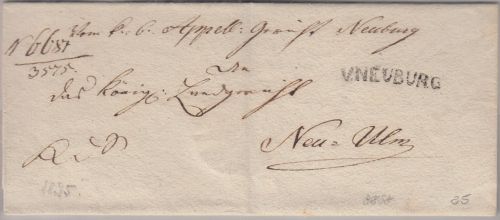 Vom k: b: Appell: Gericht Neuburg
N 6687
3575
An
V.NEUBURG
das Königl: Landgericht
Neu=Ulm
R. S.
1835.
35